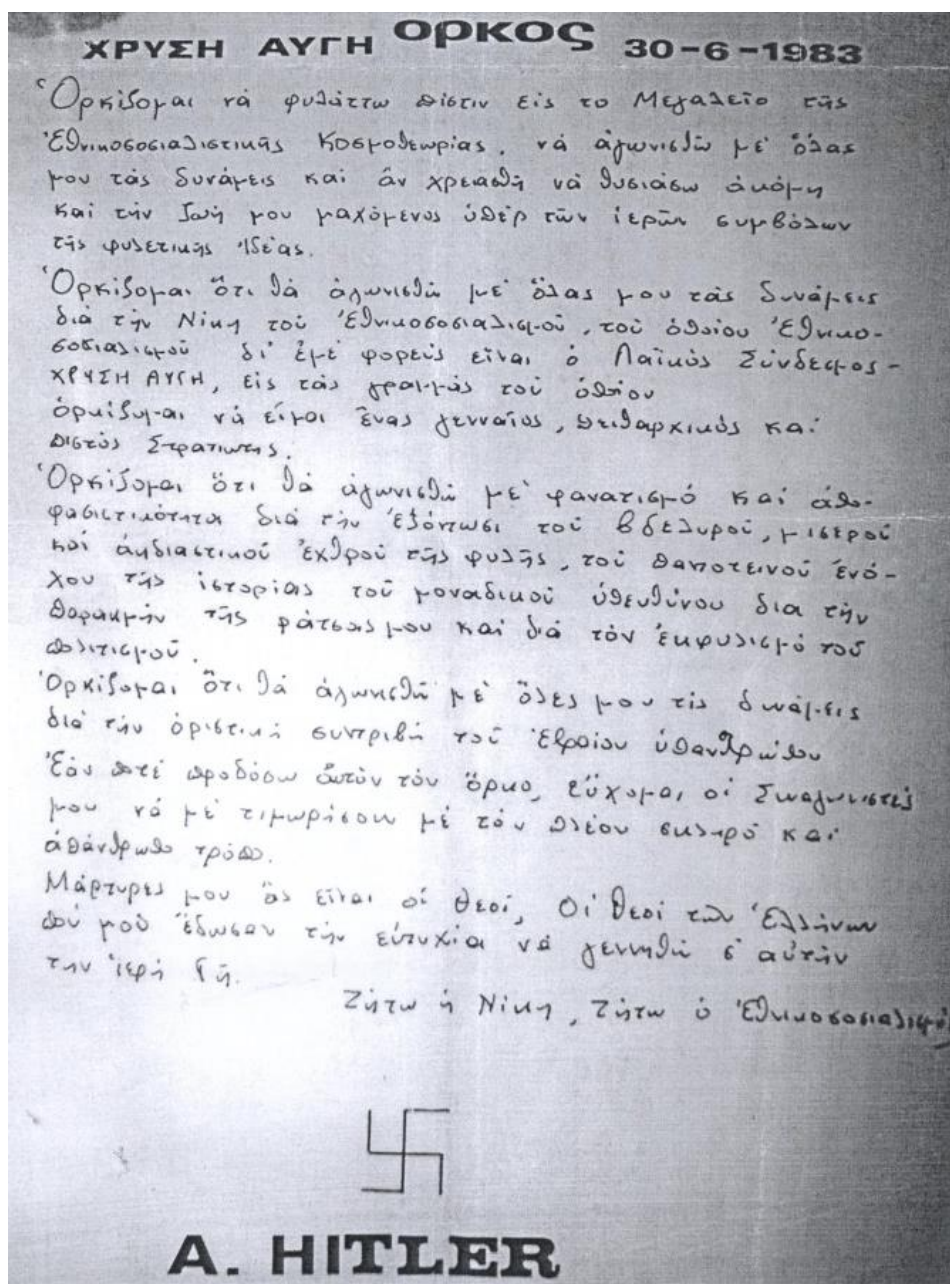 ΧΡΥΣΗ ΑΥΓΗ ΟΡΚΟΣ 30-6-1983
Ὁρκίζομαι νά φυλάττω πίστιν εἰς το Μεγαλείο τῆς
Ἐθνικοσοσιαλιστικῆς Κοσμοθεωρίας, νά ἀγωνισθῶ μέ ὅλας
μου τάς δυνάμεις καί ἄν χρειασθῆ νά θυσιάσω ἀκόμη
καί τήν ζωή μου μαχόμενος ὑπέρ τῶν ἱερῶν συμβόλων
τῆς φυλετικῆς Ἰδέας.
Ὁρκίζομαι ὅτι θά ἀγωνισθῶ μέ ὅλας μου τάς δυνάμεις
διά τήν Νίκη τοῦ Ἐθνικοσοσιαλισμοῦ, τοῦ ὁποίου Ἐθνικο-
σοσιαλισμοῦ δι' ἐμέ φορεύς εἶναι ὁ Λαϊκός Σύνδεσμος-
ΧΡΥΣΗ ΑΥΓΗ, εἰς τάς γραμμάς τοῦ ὁποίου
ὁρκίζομαι νά εἶμαι ἕνας γενναίος, πειθαρχικός καί
πιστός Στρατιώτης.
Ὁρκίζομαι ὅτι θά ἀγωνισθῶ μέ φανατισμό καί ἀπο-
φασιστικότητα διά τήν ἐξόντωσι τοῦ βδελυροῦ, μισεροῦ
καί ἀηδιαστικοῦ ἐχθροῦ τῆς φυλῆς, τοῦ παντοτεινοῦ ἐνό-
χου τῆς ἱστορίας τοῦ μοναδικοῦ ὑπευθύνου δια τήν
παρακμήν τῆς ράτσας μου καί διά τόν ἐκφυλισμό τοῦ
πολιτισμοῦ.
Ὁρκίζομαι ὅτι θά ἀγωνισθῶ μέ ὅλες μου τίς δυνάμεις
διά τήν ὁριστική συντριβή τοῦ Ἑβραίου ὑπανθρώπου
Ἐάν ποτέ προδόσω αὐτόν τόν ὅρκο, εὔχομαι οἱ Συναγωνιστές
μου νά μέ τιμωρήσουν μέ τόν πλέον σκληρό καί
ἀπάνθρωπο τρόπο.
Μάρτυρες μου ἄς εἶναι οἱ θεοί, Οἱ θεοί τῶν Ἑλλήνων
πού μοῦ ἔδωσαν τήν εὐτυχία νά γεννηθῶ σ' αὐτήν
την ἱερή Γῆ.
Ζήτω ἡ Νίκη, Ζήτω ὁ Ἐθνικοσοσιαλισμό
A. HITLER